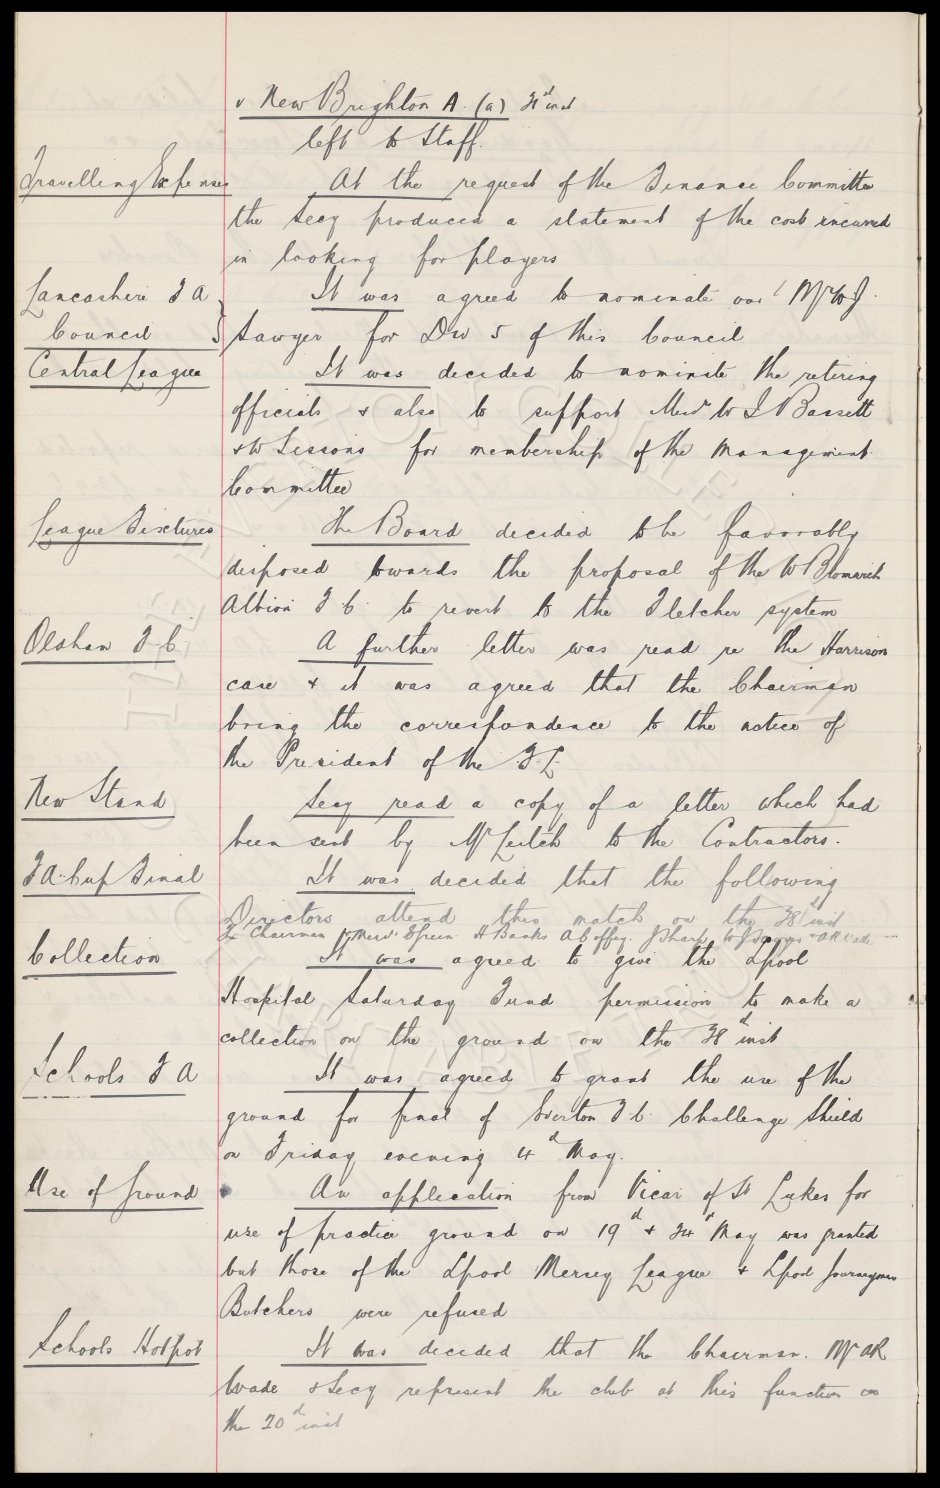 v New Brighton A. (a) 21st inst
left to Staff.
Travelling Expenses At the request of the Finance Committee
the Secy produced a statement of the cost incurred
in looking for players
Lancashire F A It was agreed to nominate our Mr W J.
Council Sawyer for Div 5 of this Council
Central League It was decided to nominate the retiring
officials & also to support Messrs W I Bassett
& W Sissons for membership of the Management
Committee
League Fixtures The Board decided to be favorably
disposed towards the proposal of the W Bromwich
Albion F C. to revert to the Fletcher system
Oldham F C. A further letter was read re the Harrison
case & it was agreed that the Chairman
bring the correspondence to the notice of
the President of the F. L.
New Stand Secy read a copy of a letter which had
been sent by Mr Leitch to the Contractors.
F A. Cup Final It was decided that the following
Directors attend this match on the 28th inst
The Chairman Messrs E Green H Banks A Coffey J Sharp W J Sawyer & A R Wade
Collection It was agreed to give the Lpool
Hospital Saturday Fund permission to make a
collection on the ground on the 28th inst
Schools F A It was agreed to grant the use of the
ground for final of Everton F C. Challenge Shield
on Friday evening 4th May.
Use of Ground An application from Vicar of St Lukes for
use of practice ground on 19th & 24th May was granted
but those of the Lpool Mersey League & Lpool Journeymen
Butchers were refused
Schools Hotpot It was decided that the Chairman. Mr A R
Wade & Secy represent the club at this function on
the 20th inst
THE EVERTON COLLECTION CHARITABLE TRUST